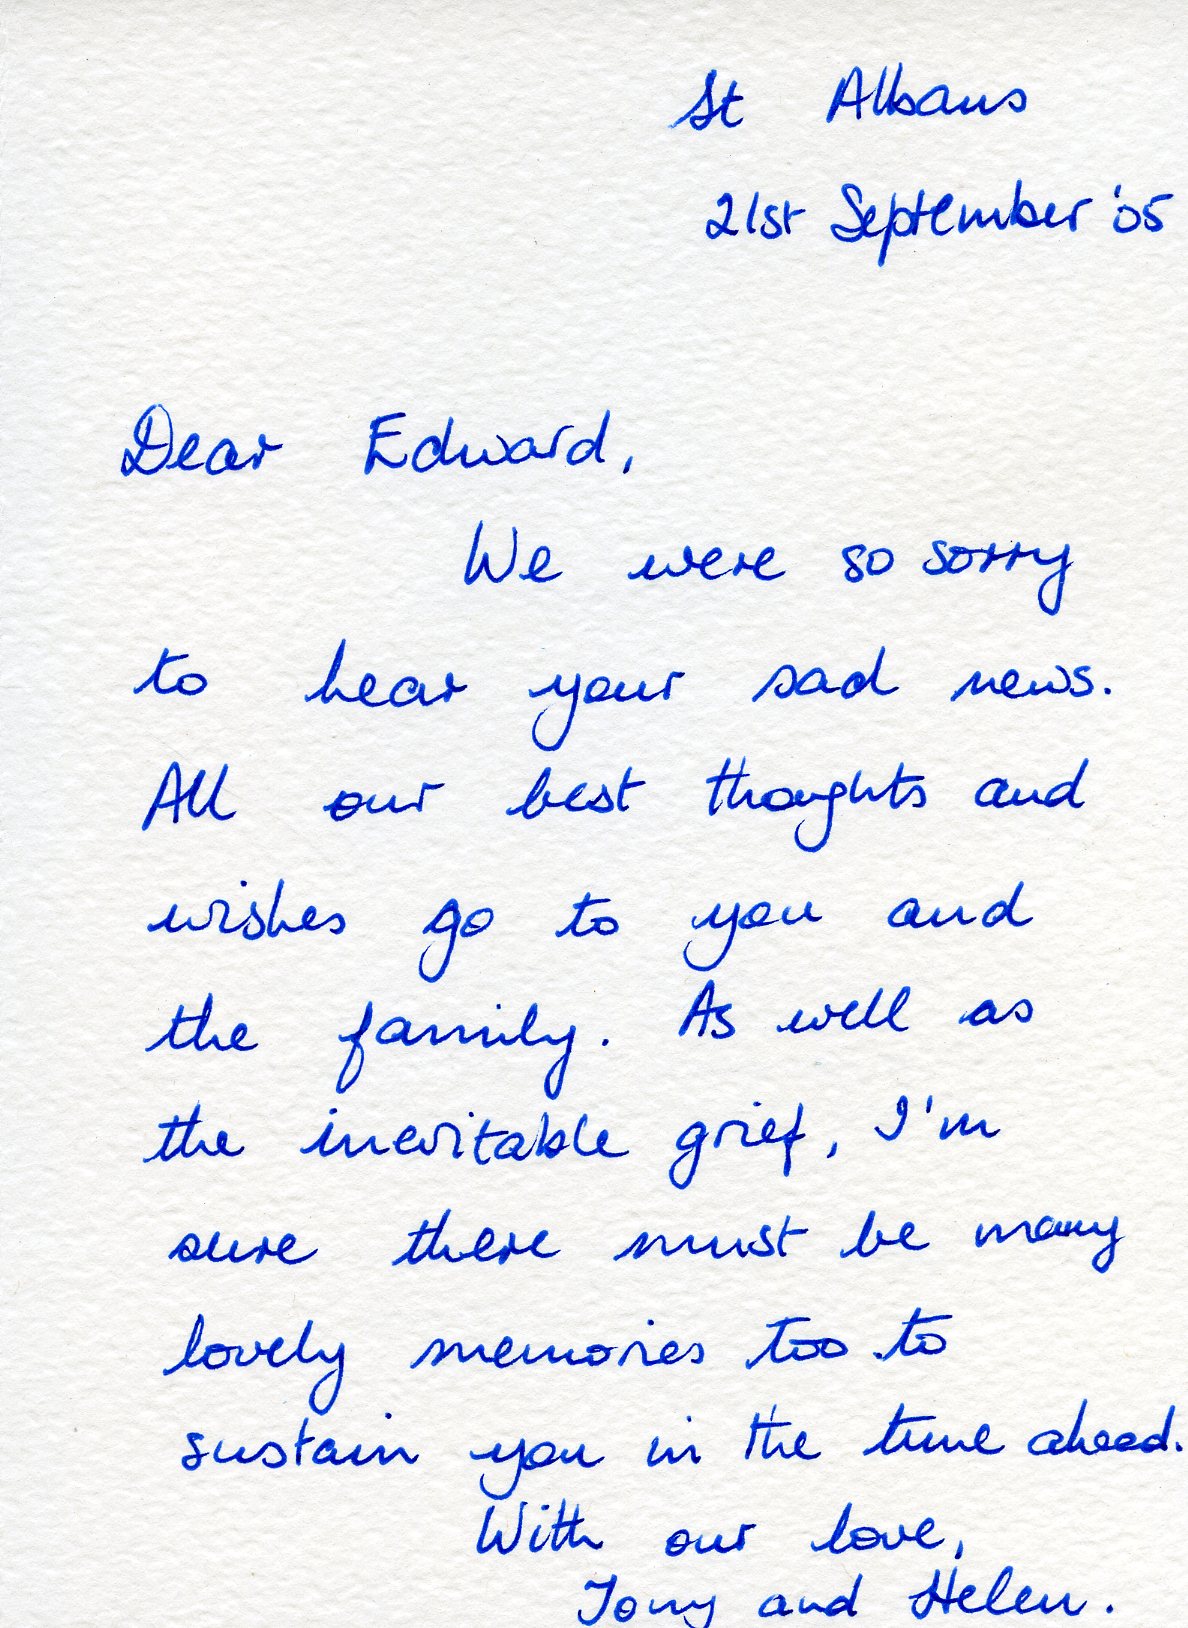 St Albans
21st September '05
Dear Edward,
We were so sorry
to hear your sad news.
All our best thoughts and
wishes go to you and
the family. As well as
the inevitable grief, I'm
sure there must be many
lovely memories too to
sustain you in the time ahead.
With our love,
Tony and Helen.